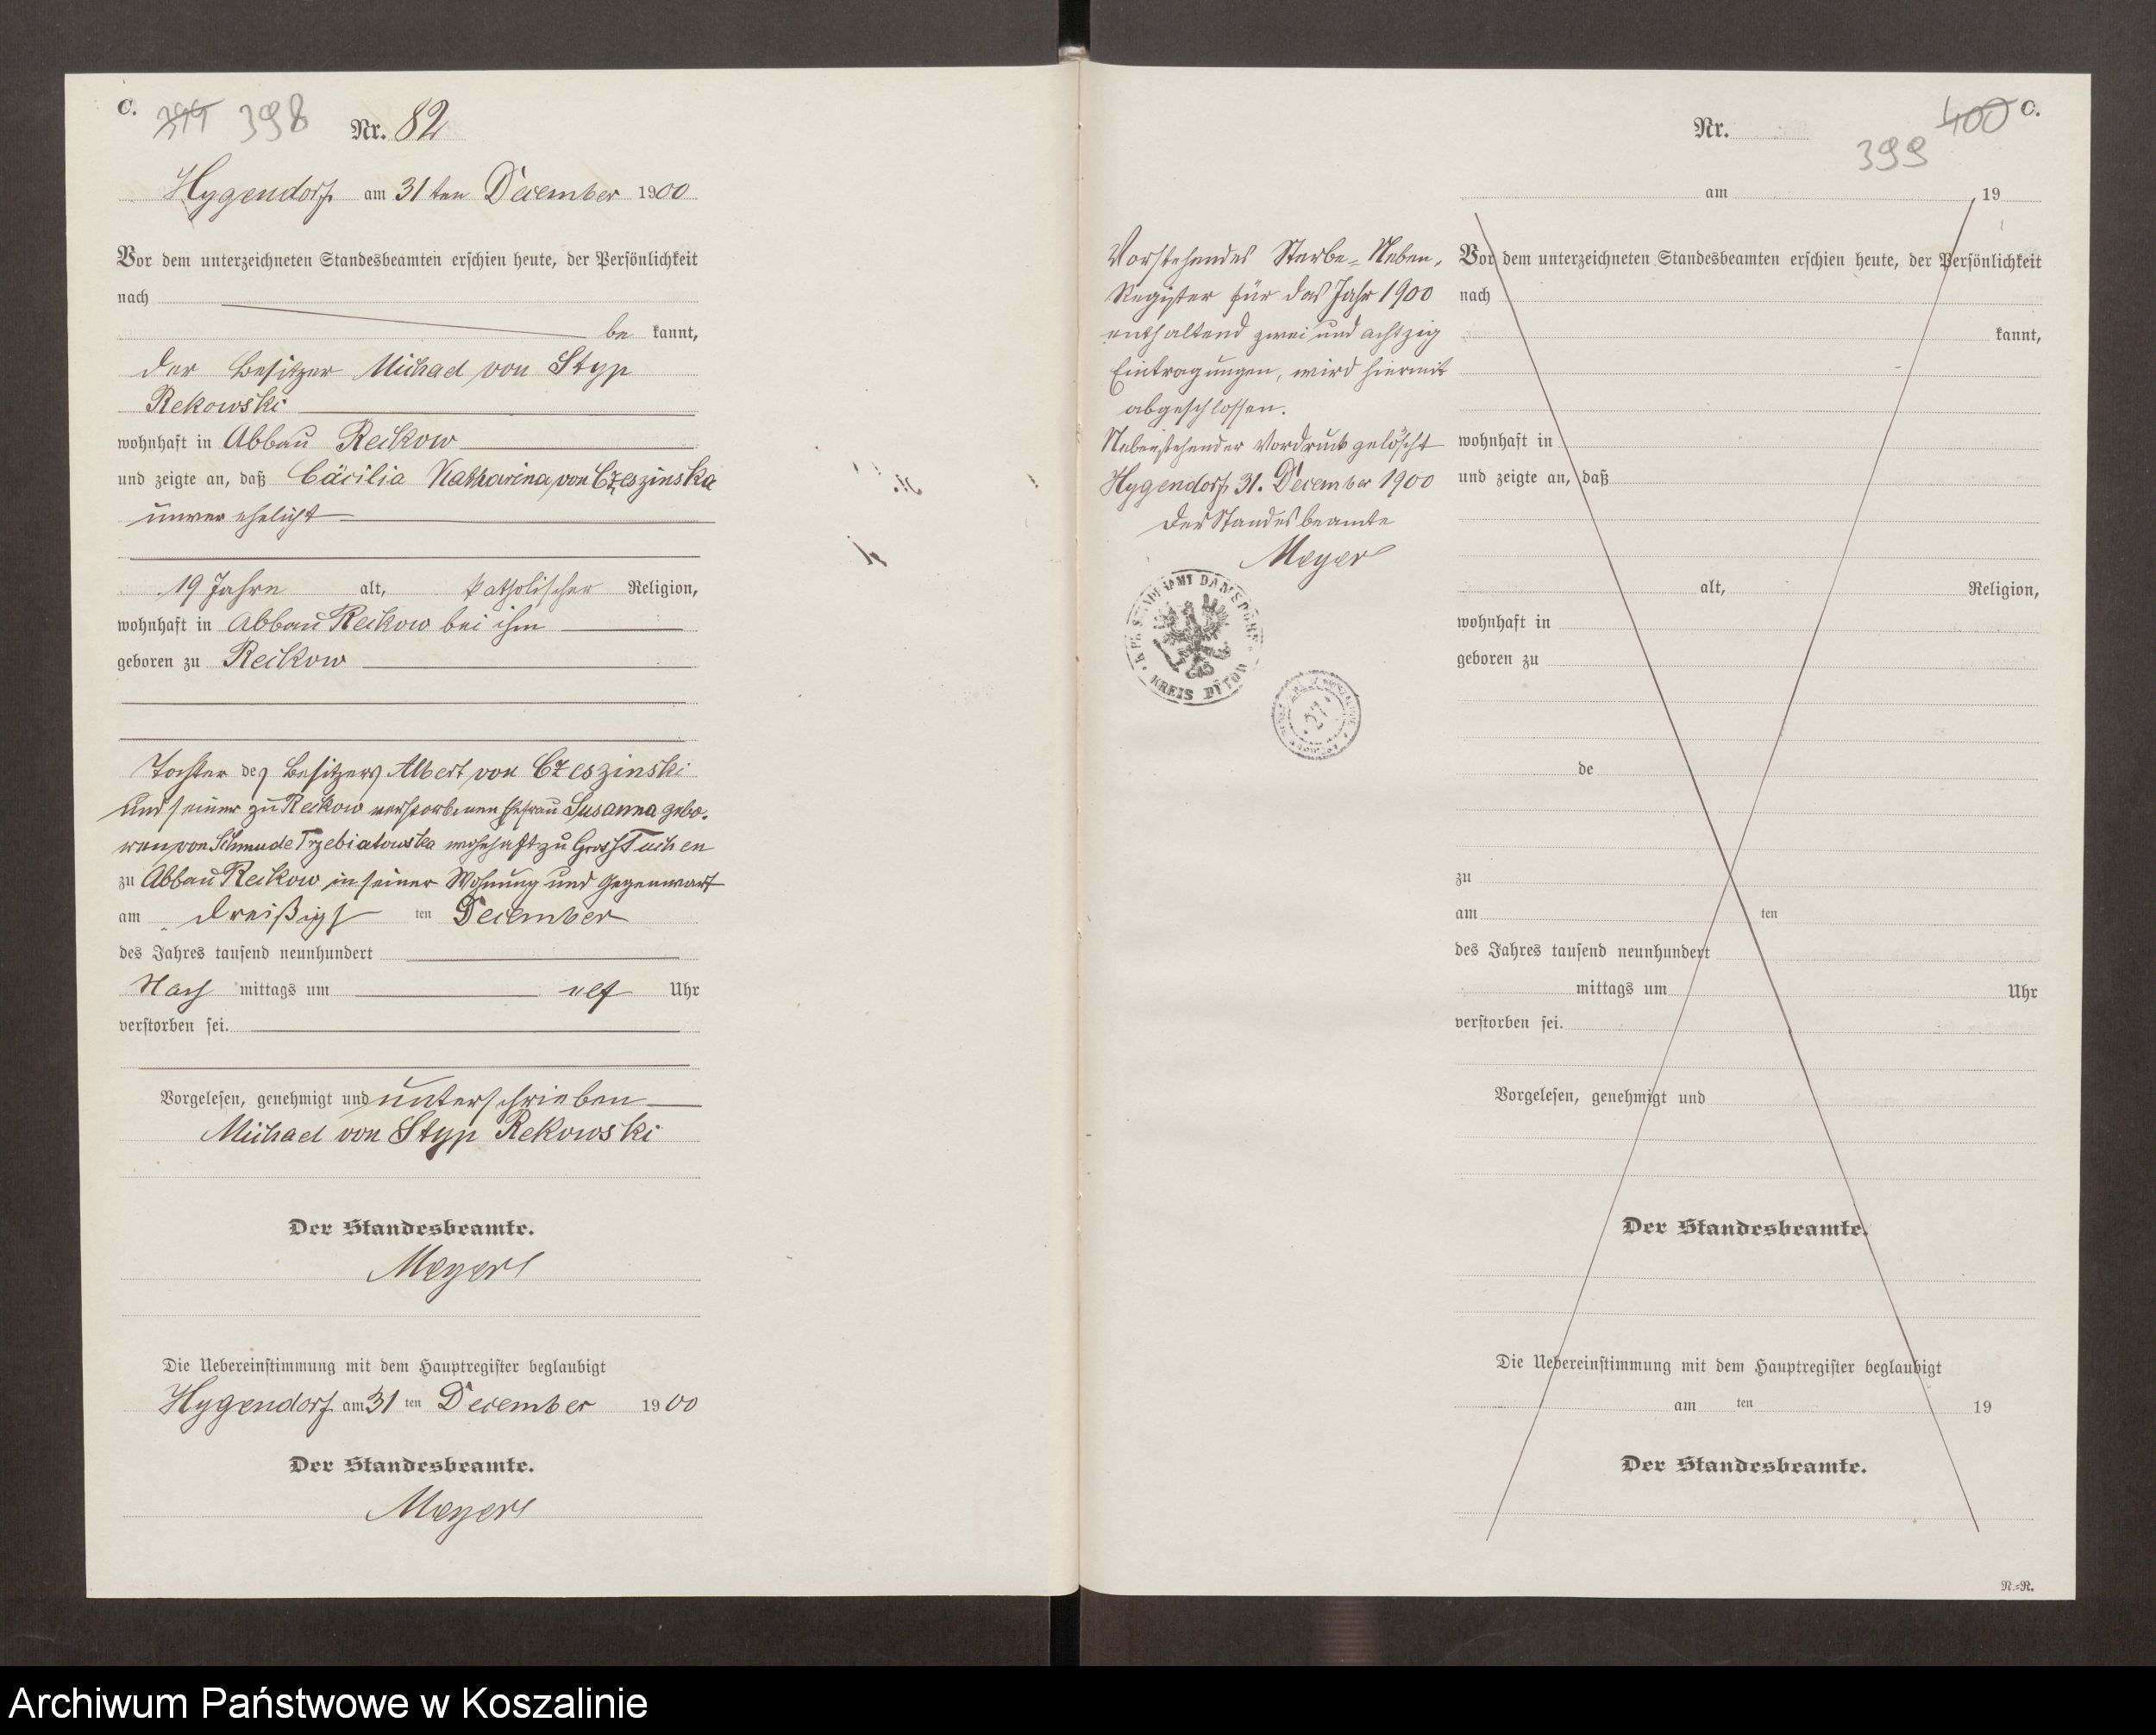 C.
399 398
Nr. 82
Hygendorf am 31ten December 1900
Vor dem unterzeichneten Standesbeamten erschien heute, der Persönlichkeit
nach
be kannt,
der Besitzer Michael von Styp
Rekowski
wohnhaft in Abbau Reckow
und zeigte an, daß Cäcilia Katharina von Czeszinska
unverehelicht
19 Jahre alt, katholischer Religion,
wohnhaft in Abbau Reckow bei ihm
geboren zu Reckow
Tochter des Besitzers Albert von Czeszinski
und seiner zu Reckow verstorbenen Ehefrau Susanna gebo-
ren von Schmude Trzebiatowska wohnhaft zu Gross Tuchen
zu Abbau Reckow in seiner Wohnung und Gegenwart
am dreißigsten December
des Jahres tausend neunhundert
Nach mittags um elf Uhr
verstorben sei.
Vorgelesen, genehmigt und unterschrieben
Michael von Styp Rekowski
Der Standesbeamte.
Meyer
Die Uebereinstimmung mit dem Hauptregister beglaubigt
Hygendorf am 31 ten December 1900
Der Standesbeamte.
Meyer
Vorstehendes Sterbe-Neben-
Register für das Jahr 1900
enthaltend zwei und achtzig
Eintragungen, wird hiermit
abgeschlossen.
Nebenstehender Vordruck gelöscht
Hygendorf 31. December 1900
Der Standesbeamte
Meyer
KREIS BÜTOW
27
400 C.
399
Nr.
am 19
Vor dem unterzeichneten Standesbeamten erschien heute, der Persönlichkeit
nach
kannt,
wohnhaft in
und zeigte an, daß
alt, Religion,
wohnhaft in
geboren zu
de
zu
am ten
des Jahres tausend neunhundert
mittags um Uhr
verstorben sei.
Vorgelesen, genehmigt und
Der Standesbeamte.
Die Uebereinstimmung mit dem Hauptregister beglaubigt
am ten 19
Der Standesbeamte.
N.=R.
Archiwum Państwowe w Koszalinie